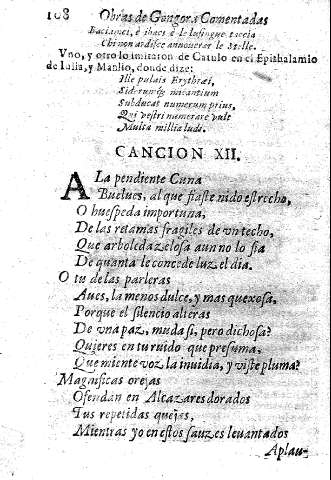 108 Obras de Gongora Comentadas
Baci amei, è ibaci è le lusingue taccia
Chi non ardisce annouerar le Stelle.
Vno, y otro lo imitaron de Catulo en el Epithalamio
de Iulia, y Manlio, donde dize:
Ille puluis Erythræi,
Siderumq; micantium
Subducat numerum prius,
Qui vestri numerare vult
Multa millia ludi.
CANCION XII.
A La pendiente Cuna
Buelues, al que fiaste nido estrecho,
O huespeda importuna,
De las retamas fragiles de vn techo,
Que arboleda zelosa aun no lo fia
De quanta le concede luz el dia.
O tu de las parleras
Aues, la menos dulce, y mas quexosa,
Porque el silencio alteras
De vna paz, muda si, pero dichosa?
Quieres en tu ruido que presuma,
Que miente voz la inuidia, y viste pluma?
Magnificas orejas
Ofendan en Alcazares dorados
Tus repetidas quejas,
Mientras yo en estos sauzes leuantados
Aplau-